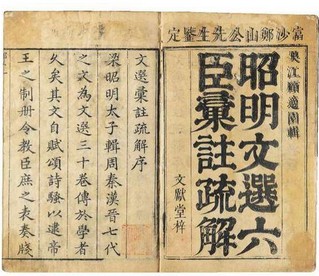 富沙鄭山公先生鑒定
吳江顧適園輯
昭明文選六
臣彙註疏解
文獻堂梓
文選彙註疏解序
梁昭明太子輯周秦漢晉七代
之文為文選三十卷傳於學者
久矣其文自賦頌詩騷以逮帝
王之制册令教臣庶之表奏牋